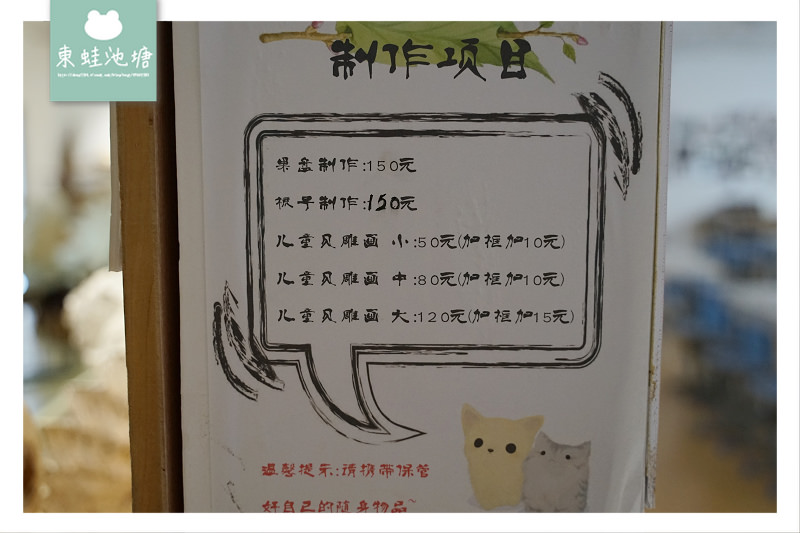 東蛙池塘
制作项目
果盘制作:150元
板子制作:150元
儿童贝雕画 小:50元(加框加10元)
儿童贝雕画 中:80元(加框加10元)
儿童贝雕画 大:120元(加框加15元)
温馨提示:请携带保管
好自己的随身物品~